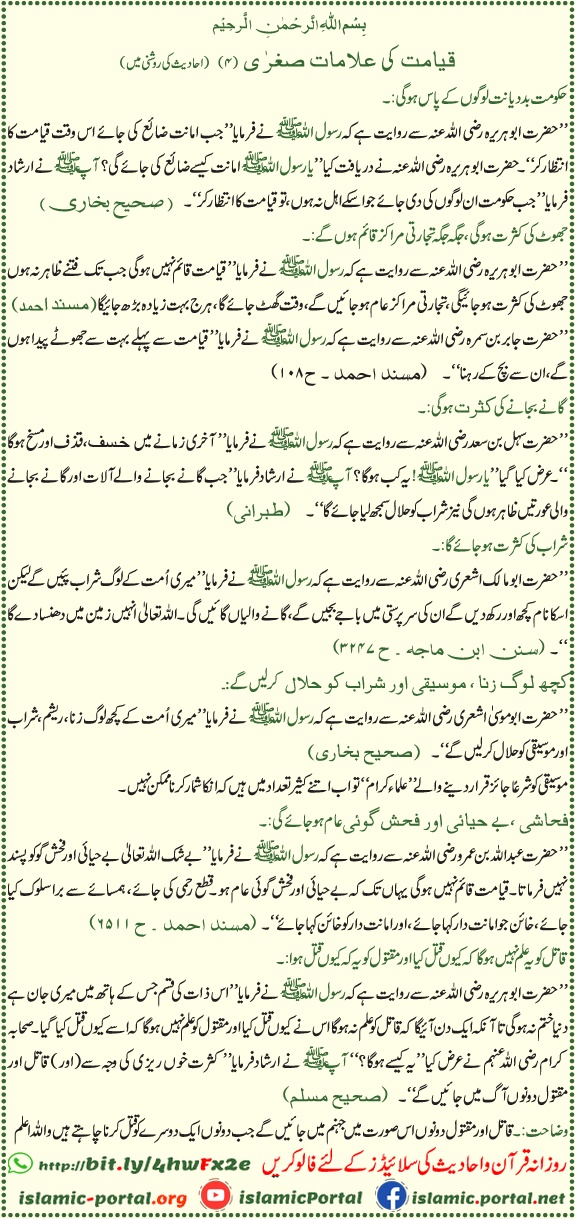 بِسْمِ اللهِ الرَّحْمٰنِ الرَّحِیْمِ
قیامت کی علامات صغریٰ (۴) (احادیث کی روشنی میں)
حکومت بددیانت لوگوں کے پاس ہوگی:۔
”حضرت ابوہریرہ رضی اللہ عنہ سے روایت ہے کہ رسول اللہ ﷺ نے فرمایا ”جب امانت ضائع کی جائے اس وقت قیامت کا
انتظار کر“۔ حضرت ابوہریرہ رضی اللہ عنہ نے دریافت کیا ”یا رسول اللہ ﷺ امانت کیسے ضائع کی جائے گی؟ آپ ﷺ نے ارشاد
فرمایا ”جب حکومت ان لوگوں کی دی جائے جو اسکے اہل نہ ہوں، تو قیامت کا انتظار کر“۔ (صحیح بخاری)
جھوٹ کی کثرت ہوگی، جگہ جگہ تجارتی مراکز قائم ہوں گے:۔
”حضرت ابوہریرہ رضی اللہ عنہ سے روایت ہے کہ رسول اللہ ﷺ نے فرمایا ”قیامت قائم نہیں ہوگی جب تک فتنے ظاہر نہ ہوں
جھوٹ کی کثرت ہوجائیگی، تجارتی مراکز عام ہوجائیں گے، وقت گھٹ جائے گا، ہرج بہت زیادہ بڑھ جائیگا (مسند احمد)
”حضرت جابر بن سمرہ رضی اللہ عنہ سے روایت ہے کہ رسول اللہ ﷺ نے فرمایا ”قیامت سے پہلے بہت سے جھوٹے پیدا ہوں
گے، ان سے بچ کے رہنا“۔ (مسند احمد ۔ ح ۱۰۸)
گانے بجانے کی کثرت ہوگی:۔
”حضرت سہل بن سعد رضی اللہ عنہ سے روایت ہے کہ رسول اللہ ﷺ نے فرمایا ”آخری زمانے میں خسف، قذف اور مسخ ہوگا
“۔ عرض کیا گیا ”یا رسول اللہ ﷺ! یہ کب ہوگا؟ آپ ﷺ نے ارشاد فرمایا ”جب گانے بجانے والے آلات اور گانے بجانے
والی عورتیں ظاہر ہوں گی نیز شراب کو حلال سمجھ لیا جائے گا“۔ (طبرانی)
شراب کی کثرت ہوجائے گا:۔
”حضرت ابو مالک اشعری رضی اللہ عنہ سے روایت ہے کہ رسول اللہ ﷺ نے فرمایا ”میری اُمت کے لوگ شراب پئیں گے لیکن
اسکا نام کچھ اور رکھ دیں گے ان کی سرپرستی میں باجے بجیں گے، گانے والیاں گائیں گی۔ اللہ تعالیٰ انہیں زمین میں دھنسا دے گا
“۔ (سنن ابن ماجہ ۔ ح ۳۲۴۷)
کچھ لوگ زنا، موسیقی اور شراب کو حلال کرلیں گے:۔
”حضرت ابو موسیٰ اشعری رضی اللہ عنہ سے روایت ہے کہ رسول اللہ ﷺ نے فرمایا ”میری اُمت کے کچھ لوگ زنا، ریشم، شراب
اور موسیقی کو حلال کرلیں گے“۔ (صحیح بخاری)
موسیقی کو شرعاً جائز قرار دینے والے ”علماء کرام“ تو اب اتنے کثیر تعداد میں ہیں کہ انکا شمار کرنا ممکن نہیں۔
فحاشی، بے حیائی اور فحش گوئی عام ہوجائے گی:۔
”حضرت عبداللہ بن عمرو رضی اللہ عنہ سے روایت ہے کہ رسول اللہ ﷺ نے فرمایا ”بے شک اللہ تعالیٰ بے حیائی اور فحش گو کو پسند
نہیں فرماتا۔ قیامت قائم نہیں ہوگی یہاں تک کہ بے حیائی اور فحش گوئی عام ہو۔ قطع رحمی کی جائے، ہمسائے سے برا سلوک کیا
جائے، خائن جو امانت دار کہا جائے، اور امانت دار کو خائن کہا جائے“۔ (مسند احمد ۔ ح ۶۵۱۱)
قاتل کو یہ علم نہیں ہوگا کہ کیوں قتل کیا اور مقتول کو یہ کہ کیوں قتل ہوا:۔
”حضرت ابوہریرہ رضی اللہ عنہ سے روایت ہے کہ رسول اللہ ﷺ نے فرمایا ”اس ذات کی قسم جس کے ہاتھ میں میری جان ہے
دنیا ختم نہ ہوگی تا آنکہ ایک دن آئیگا کہ قاتل کو علم نہ ہوگا اس نے کیوں قتل کیا اور مقتول کو علم نہیں ہوگا کہ اسے کیوں قتل کیا گیا۔ صحابہ
کرام رضی اللہ عنہم نے عرض کیا ”یہ کیسے ہوگا؟“ آپ ﷺ نے ارشاد فرمایا ”کثرت خوں ریزی کی وجہ سے (اور) قاتل اور
مقتول دونوں آگ میں جائیں گے“۔ (صحیح مسلم)
وضاحت:۔ قاتل اور مقتول دونوں اس صورت میں جہنم میں جائیں گے جب دونوں ایک دوسرے کو قتل کرنا چاہتے ہیں واللہ اعلم
روزانہ قرآن و احادیث کی سلائیڈز کے لئے فالو کریں http://bit.ly/4hwFx2e
islamic-portal.org islamicPortal islamic.portal.net